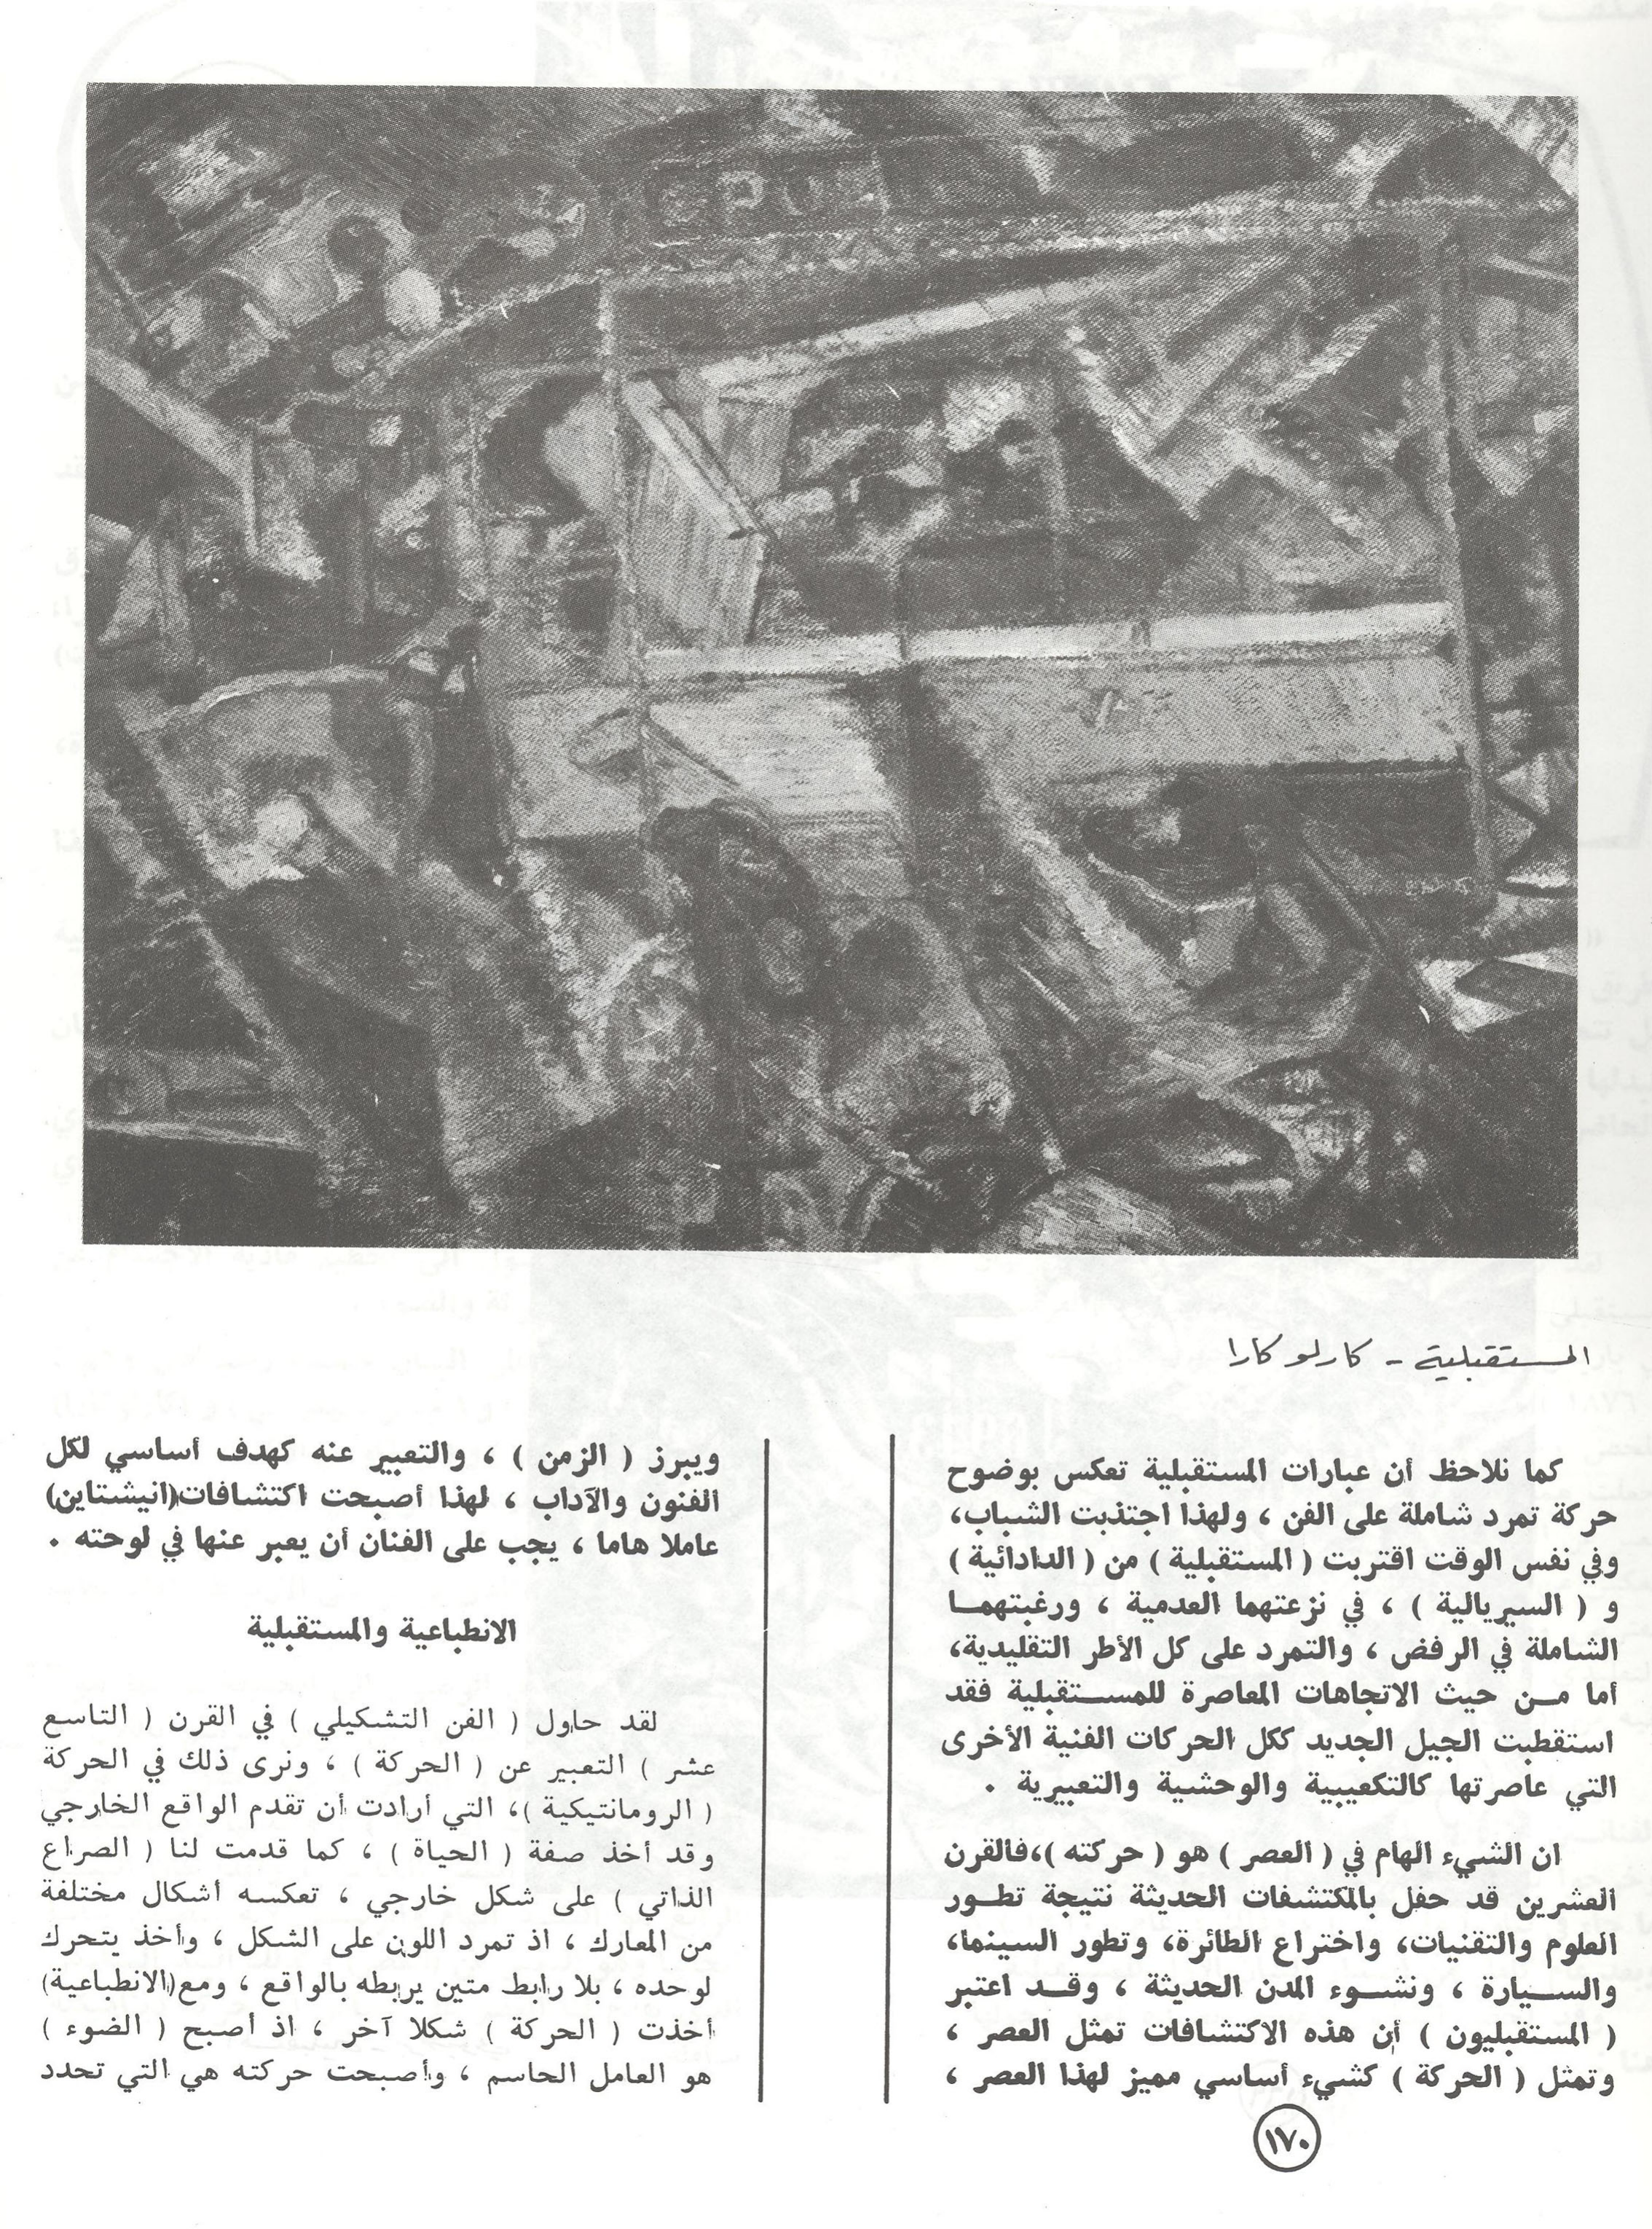 المستقبلية - كارلو كارا
كما نلاحظ أن عبارات المستقبلية تعكس بوضوح
حركة تمرد شاملة على الفن ، ولهذا اجتذبت الشباب،
وفي نفس الوقت اقتربت ( المستقبلية ) من ( الدادائية )
و ( السيريالية ) ، في نزعتهما العدمية ، ورغبتهمــا
الشاملة في الرفض ، والتمرد على كل الأطر التقليدية،
أما مــن حيث الاتجاهات المعاصرة للمســتقبلية فقد
استقطبت الجيل الجديد ككل الحركات الفنية الأخرى
التي عاصرتها كالتكعيبية والوحشية والتعبيرية .
ان الشيء الهام في ( العصر ) هو ( حركته )،فالقرن
العشرين قد حفل بالمكتشفات الحديثة نتيجة تطــور
العلوم والتقنيات، واختراع الطائرة، وتطور السينما،
والســيارة ، ونشــوء المدن الحديثة ، وقــد اعتبر
( المستقبليون ) أن هذه الاكتشافات تمثل العصر ،
وتمثل ( الحركة ) كشيء أساسي مميز لهذا العصر ،
ويبرز ( الزمن ) ، والتعبير عنه كهدف أساسي لكل
الفنون والآداب ، لهذا أصبحت اكتشافات(انيشتاين)
عاملا هاما ، يجب على الفنان أن يعبر عنها في لوحته .
الانطباعية والمستقبلية
لقد حاول ( الفن التشكيلي ) في القرن ( التاسع
عشر ) التعبير عن ( الحركة ) ، ونرى ذلك في الحركة
( الرومانتيكية )، التي أرادت أن تقدم الواقع الخارجي
وقد أخذ صفة ( الحياة ) ، كما قدمت لنا ( الصراع
الذاتي ) على شكل خارجي ، تعكسه أشكال مختلفة
من المعارك ، اذ تمرد اللون على الشكل ، وأخذ يتحرك
لوحده ، بلا رابط متين يربطه بالواقع ، ومع(الانطباعية)
أخذت ( الحركة ) شكلا آخر ، اذ أصبح ( الضوء )
هو العامل الحاسم ، وأصبحت حركته هي التي تحدد
١٧٠